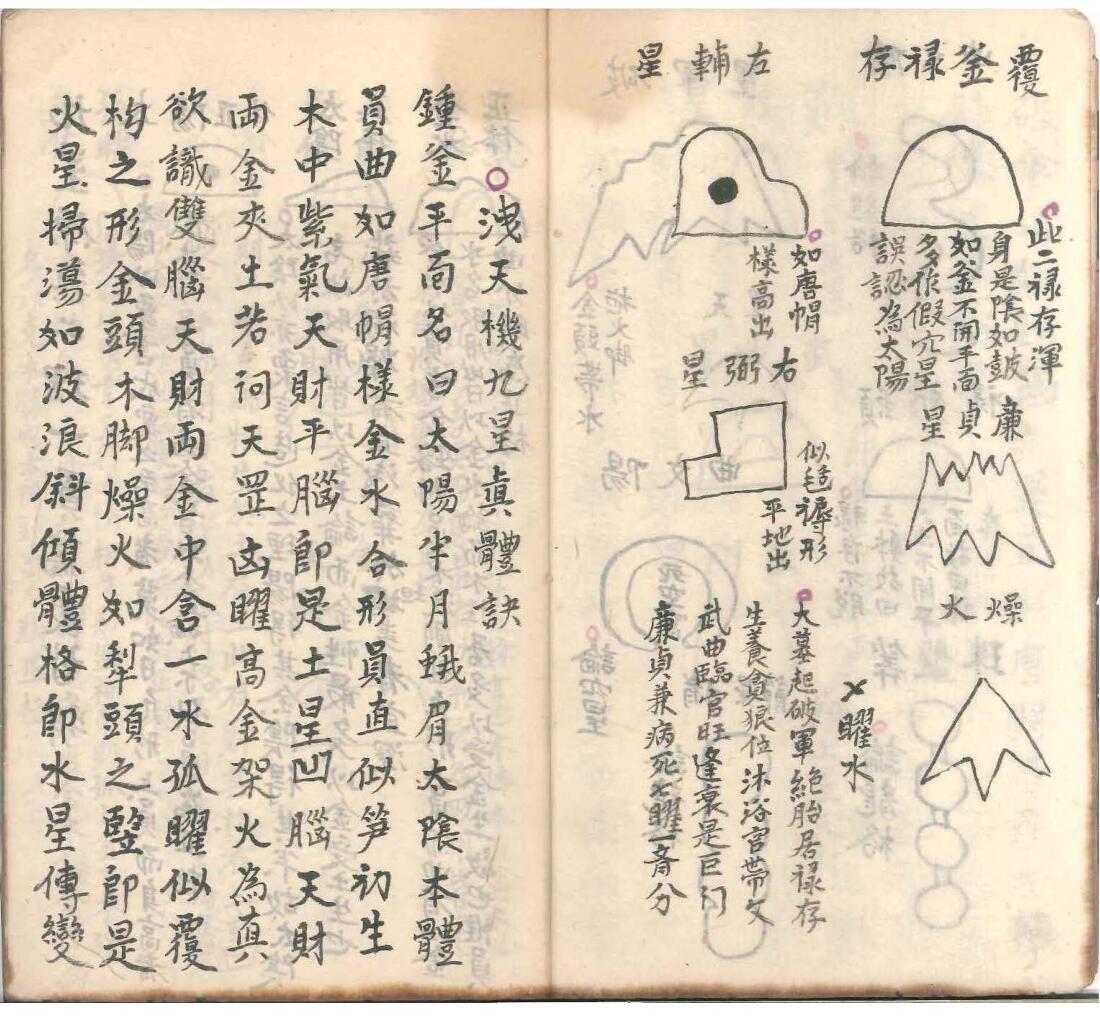 覆釜禄存
此二禄存渾
身是陰如皷
如釜不開平面
多作假穴星
誤認為太陽
廉貞星
燥火
左輔星
如唐帽
樣高出
右弼星
似毡褥形
平地出
曜水
大墓起破軍絶胎居禄存
生養貪狼位沐浴官帶文
武曲臨官旺逢衰是巨门
廉貞兼病死七曜一斉分
洩天機九星眞體訣
鍾釜平面名曰太陽半月蛾眉太陰本體
員曲如唐帽樣金水合形員直似笋初生
木中紫氣天財平腦即是土星凹腦天財
両金夾土若祠天罡凶曜高金架火為真
欲識雙腦天財両金中含一水孤曜似覆
杓之形金頭木脚燥火如犁頭之竪即是
火星掃蕩如波浪斜傾體格即水星傳變